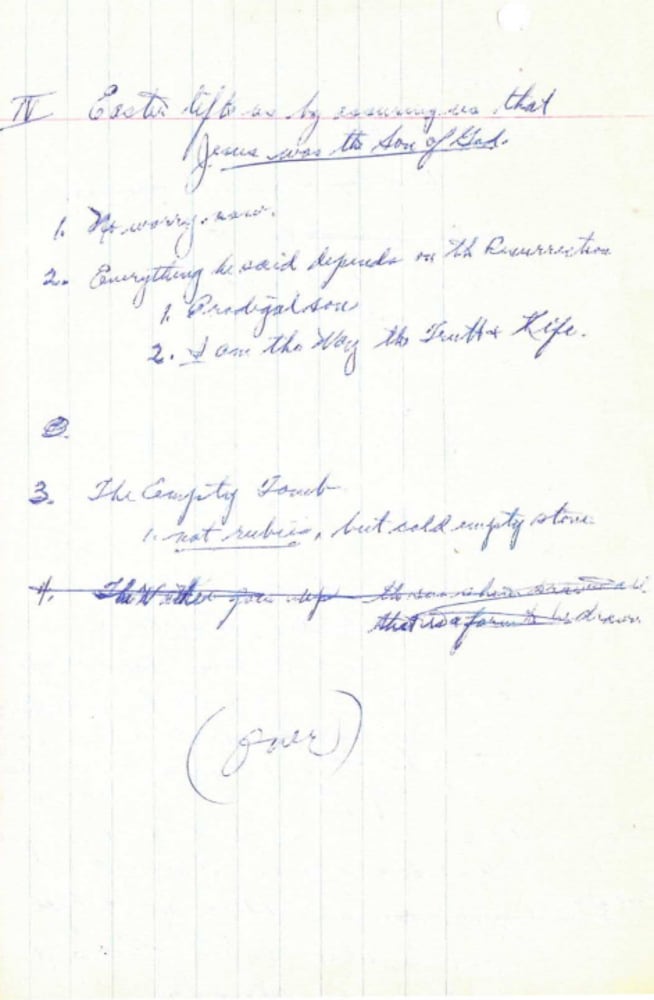 IV Easter lifts us by assuring us that
Jesus was the Son of God.
1. No worry now.
2. Everything he said depends on th Resurrection
1. Prodigal son
2. I am the Way the Truth & Life.
3. The Empty Tomb
1. not rubies, but cold empty stone
4. The goes up
that is a form to be drawn
(over)